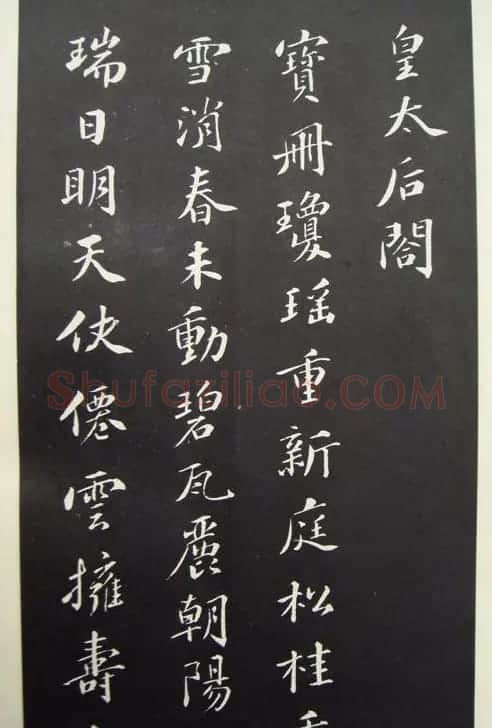 皇太后閤
寶冊瓊瑶重新庭松桂
雪消春未動碧瓦麗朝陽
瑞日明天仗僊雲擁壽
Shufaziliao.COM